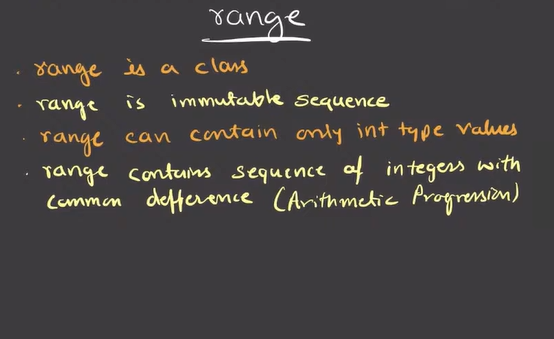 range
. range is a class
. range is immutable sequence
. range can contain only int type values
. range contains sequence of integers with
common defference (Arithmetic Progression)